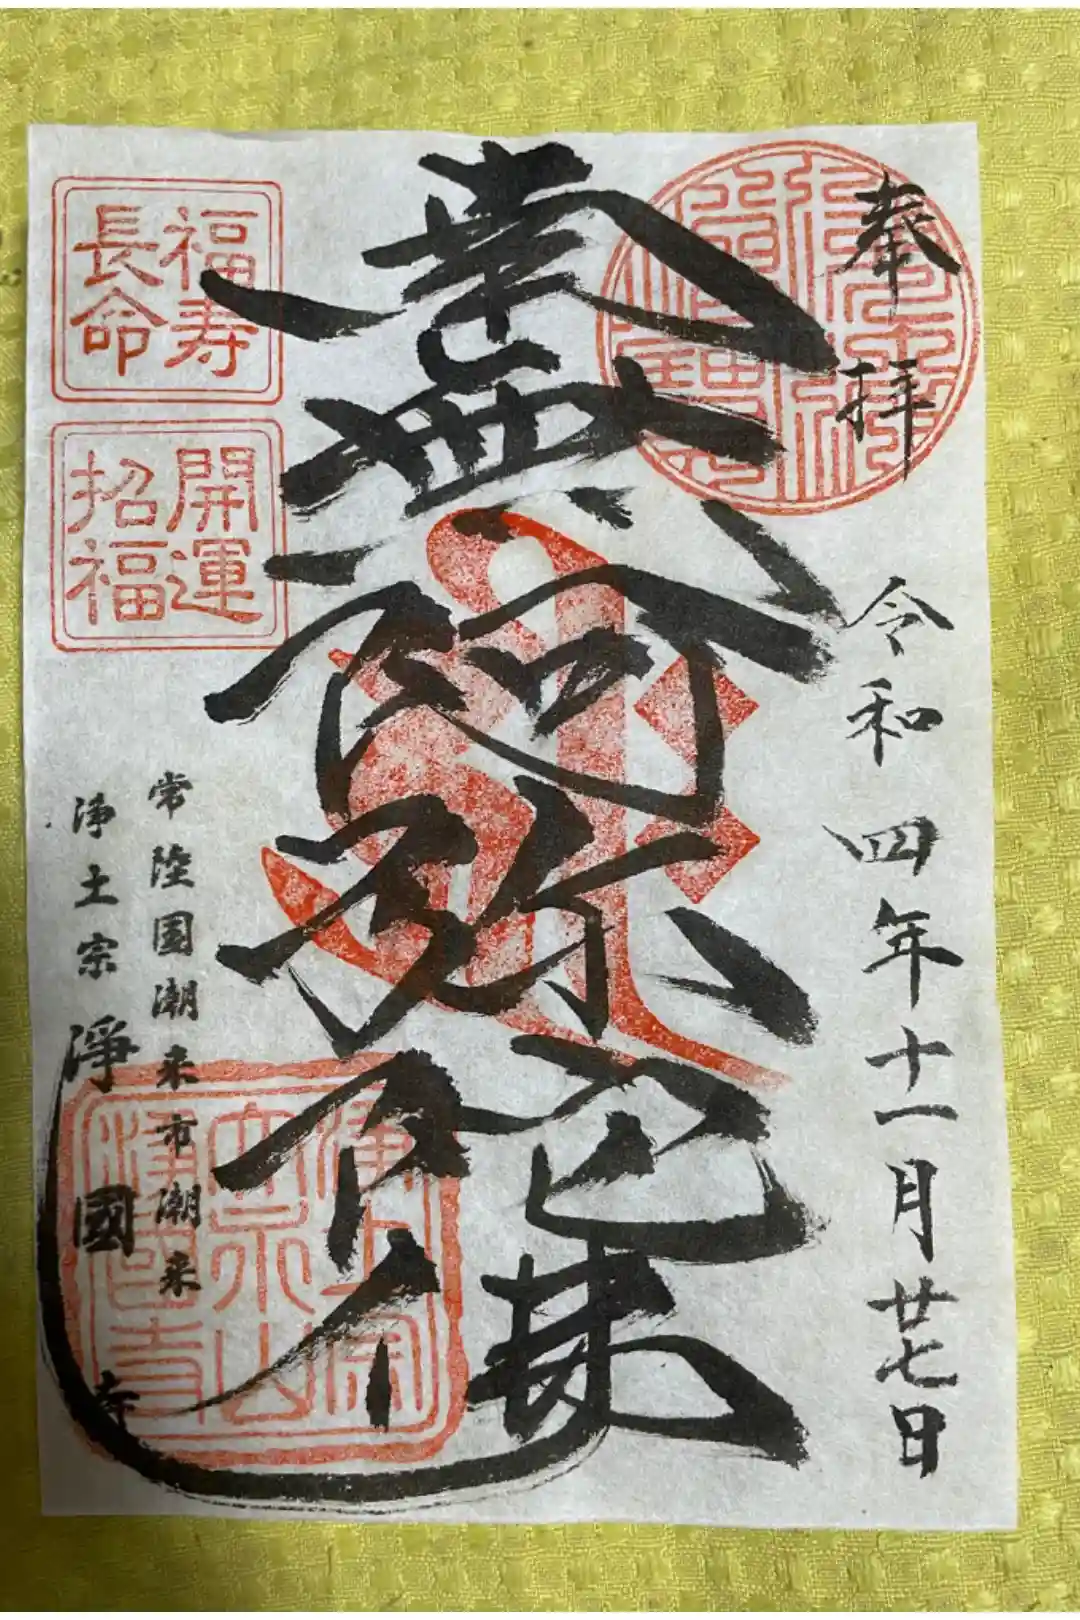 奉拝
令和四年十一月廿七日
南無阿弥陀佛
福寿
長命
開運
招福
常陸国潮来市潮来
浄土宗 浄國寺